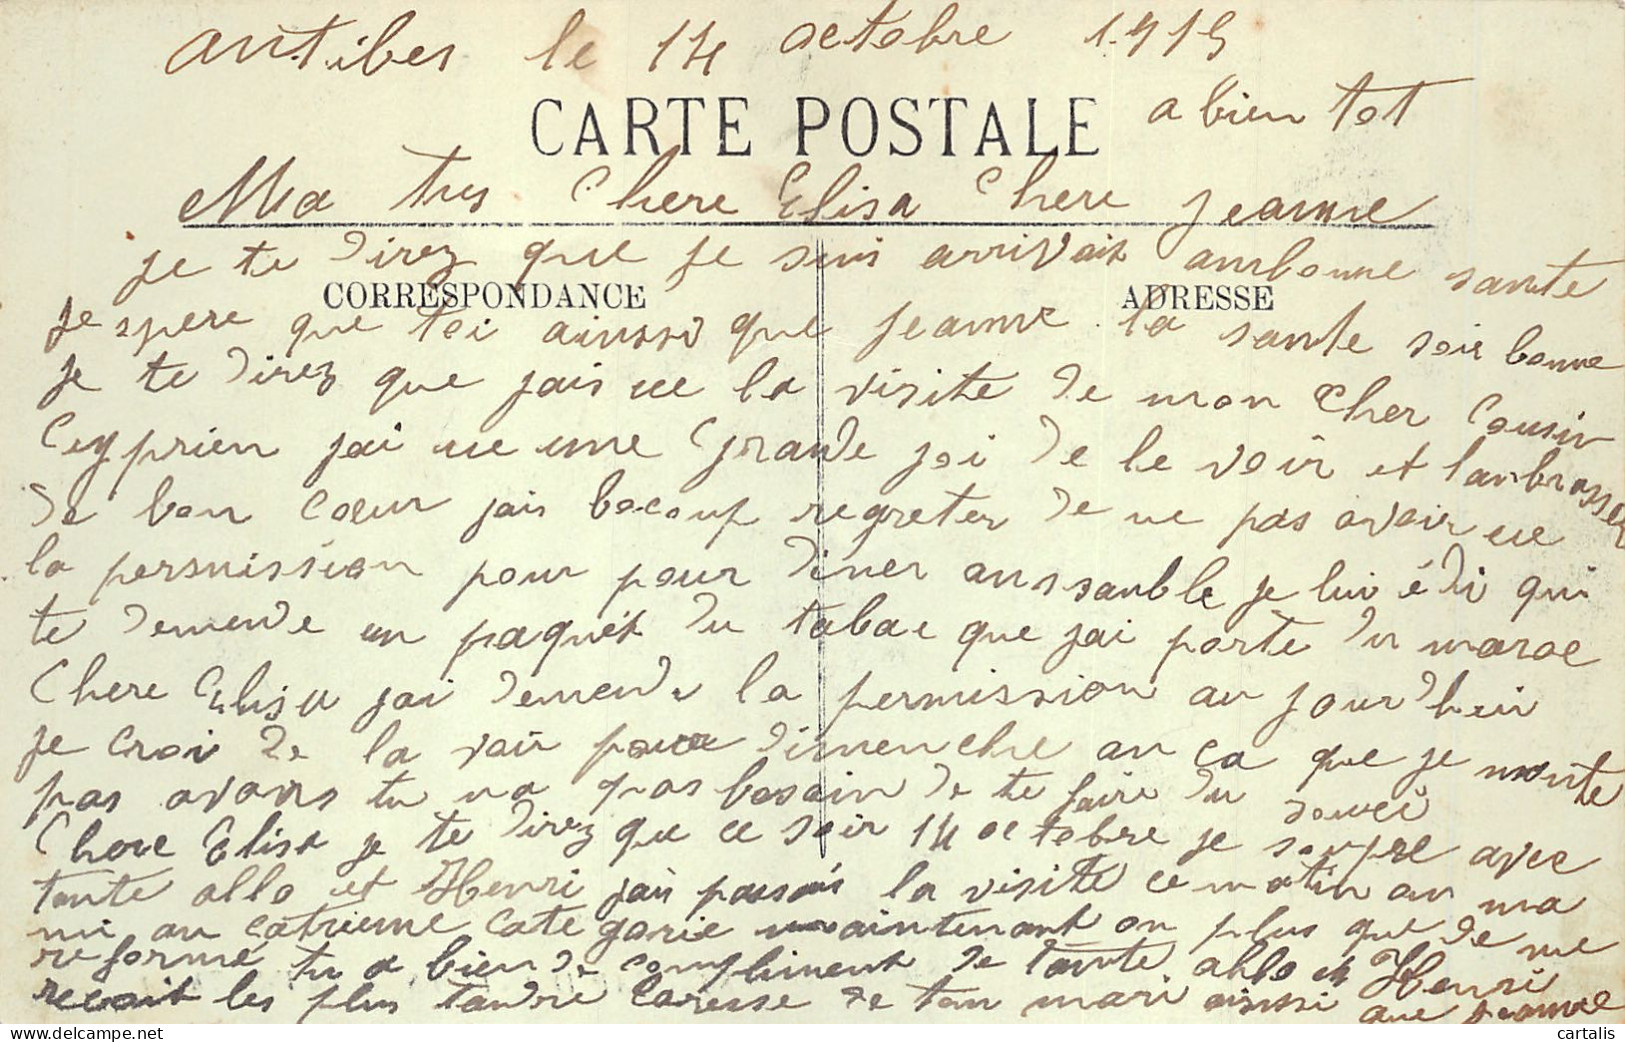 antibes le 14 octobre 1915
a bien tot
CARTE POSTALE
Ma tres Chere Elisa Chere jeanne
je te direz que je suis arrivait ambonne sante
CORRESPONDANCE
ADRESSE
je spere que toi ainssi que jeanne la sante soir bonne
je te direz que jais ue la visite de mon Cher Cousin
Cyprien jai ue une Grande joi de le voir et lanbrasser
de bon Coeur jais bocoup regreter de ne pas avoir ue
la permission pour pour diner anssanble je lui é di qui
te demende un paquet du tabac que jai porte du maroc
Chere Elisa jai demende la permission au jourdhui
je croi de la voir pour dimenche an ca que je monte
pas avans tu na pas besoin de te faire du souci
Chere Elisa je te direz que ce soir 14 octobre je soupre avec
tante allo et Henri jais passais la visite ce matin an ma
mi au catrieme categorie maintenant on plus que de me
reformé tu a bien de compliment de tante allo et Henri
recoit les plus tandre Caresse de ton mari ainssi que jeanne
cartalis